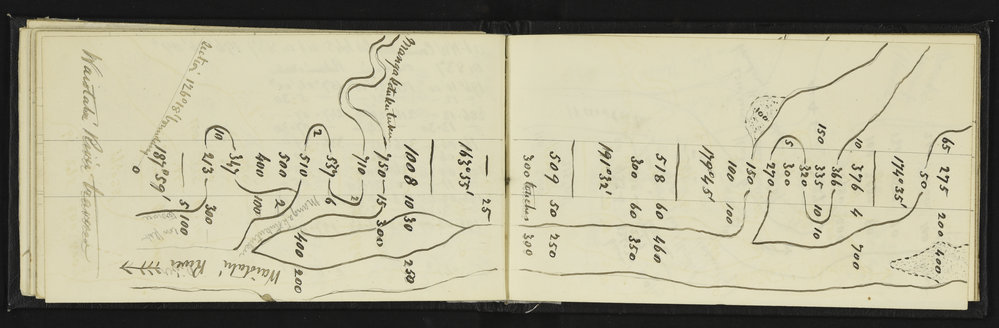 65 275 200 400
50
174°35'
10 376 4 700
366
150 335 10 10
320
15 300
270
100 150
100 100
179°45'
518 60 460
300 60 350
191°32'
509 50 250
300 300
25
163°55'
1008 10 30 250
Mangaketukutuku
750 15 300
710 2
537 6
2 510 400 200
500 2
Mangaketukutuku
400 100
347
Waiotahi River
10 213 300
5 100
187°59'
0
Waiotahi River traverse